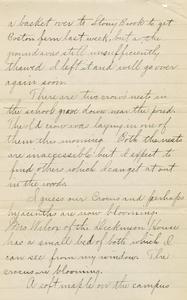 a basket over to Stony Brook to get
Boston fern last week, but as the
ground was still unsufficiently
thawed I left it and will go over
again soon.
There are two crows nests in
the school grove down near the pond.
The old crow was laying in one of
them this morning. Both the nests
are inaccessible but I expect to
find others which I can get at out
in the woods.
I guess our Crocus and perhaps
hyacinths are now blooming.
Mrs. of the Dickinson House
has a small bed of both which I
can see from my window. The
crocus are blooming.
A soft maple on the campus